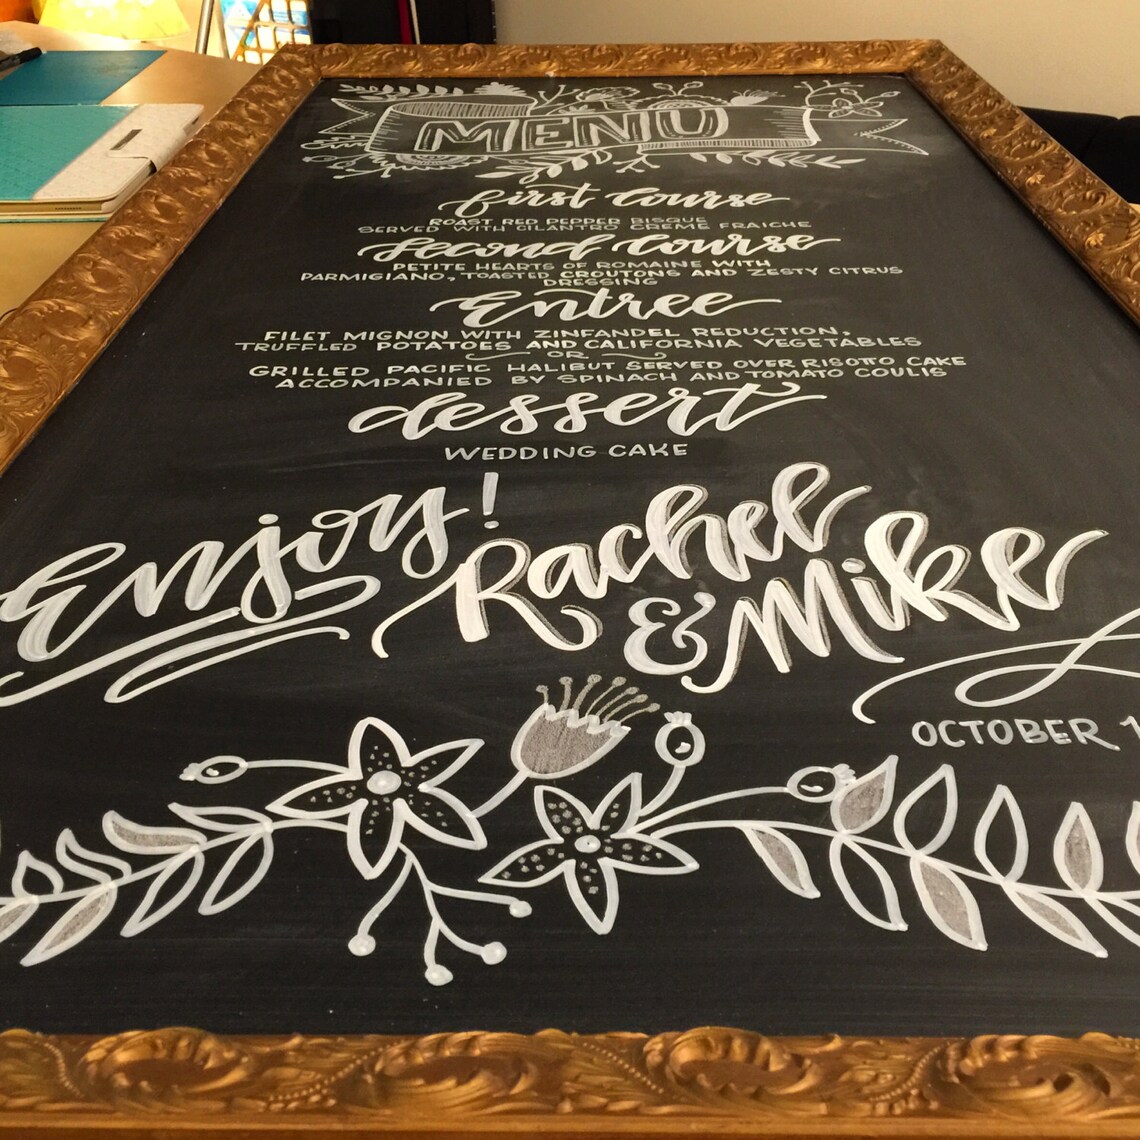 MENU
first course
ROAST RED PEPPER BISQUE
SERVED WITH CILANTRO CREME FRAICHE
second course
PETITE HEARTS OF ROMAINE WITH
PARMIGIANO, TOASTED CROUTONS AND ZESTY CITRUS
DRESSING
Entree
FILET MIGNON WITH ZINFANDEL REDUCTION,
TRUFFLED POTATOES AND CALIFORNIA VEGETABLES
OR
GRILLED PACIFIC HALIBUT SERVED OVER RISOTTO CAKE
ACCOMPANIED BY SPINACH AND TOMATO COULIS
dessert
WEDDING CAKE
Enjoy!
Rachel
& Mike
OCTOBER 1